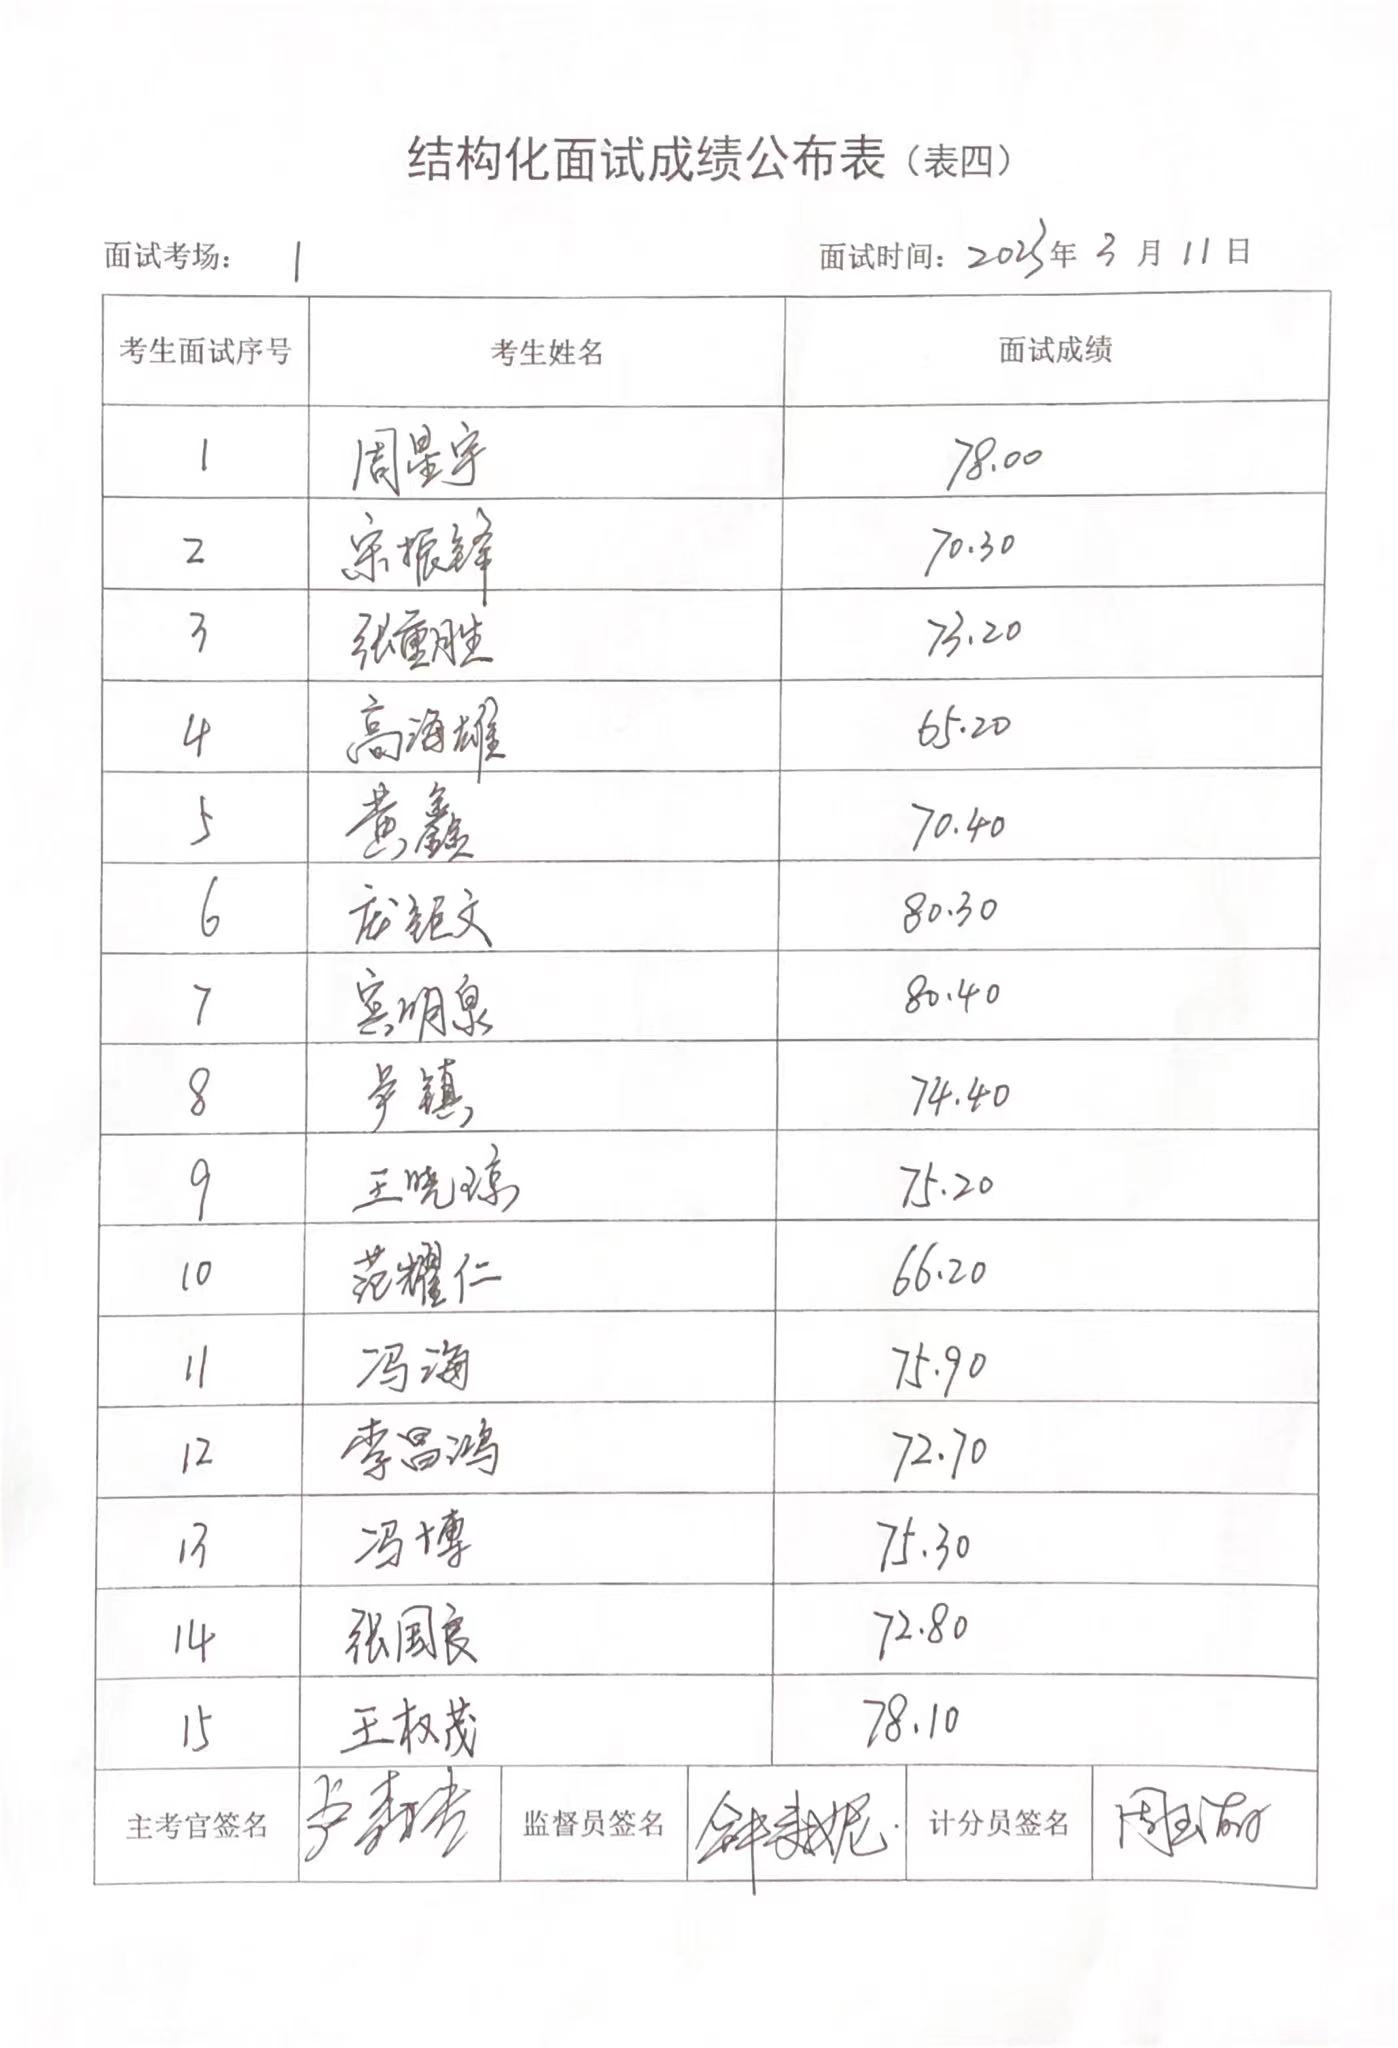 结构化面试成绩公布表（表四）
面试考场： 1 面试时间：2023年3月11日
考生面试序号 考生姓名 面试成绩
1 周星宇 78.00
2 宋振锋 70.30
3 张重胜 73.20
4 高海雄 65.20
5 黄鑫 70.40
6 庞钜文 80.30
7 宾明泉 80.40
8 镇 74.40
9 王晓琼 75.20
10 范耀仁 66.20
11 冯海 75.90
12 李昌鸿 72.70
13 冯博 75.30
14 张国良 72.80
15 王权茂 78.10
主考官签名 监督员签名 计分员签名